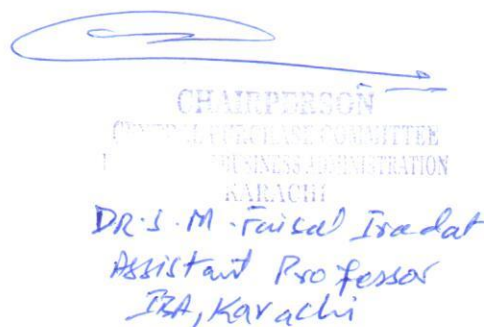 CHAIRPERSON
PURCHASE COMMITTEE
BUSINESS ADMINISTRATION
KARACHI
DR. S. M. Faisal Iradat
Assistant Professor
IBA, Karachi